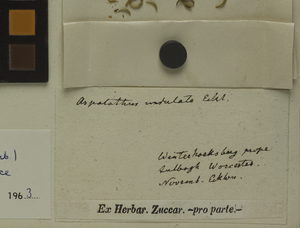 Aspalathus undulata Eckl.
Winterhoeksberg prope
Tulbagh Worcester.
Novemb. Ecklon.
Ex Herbar. Zuccar. -pro parte.-
1963